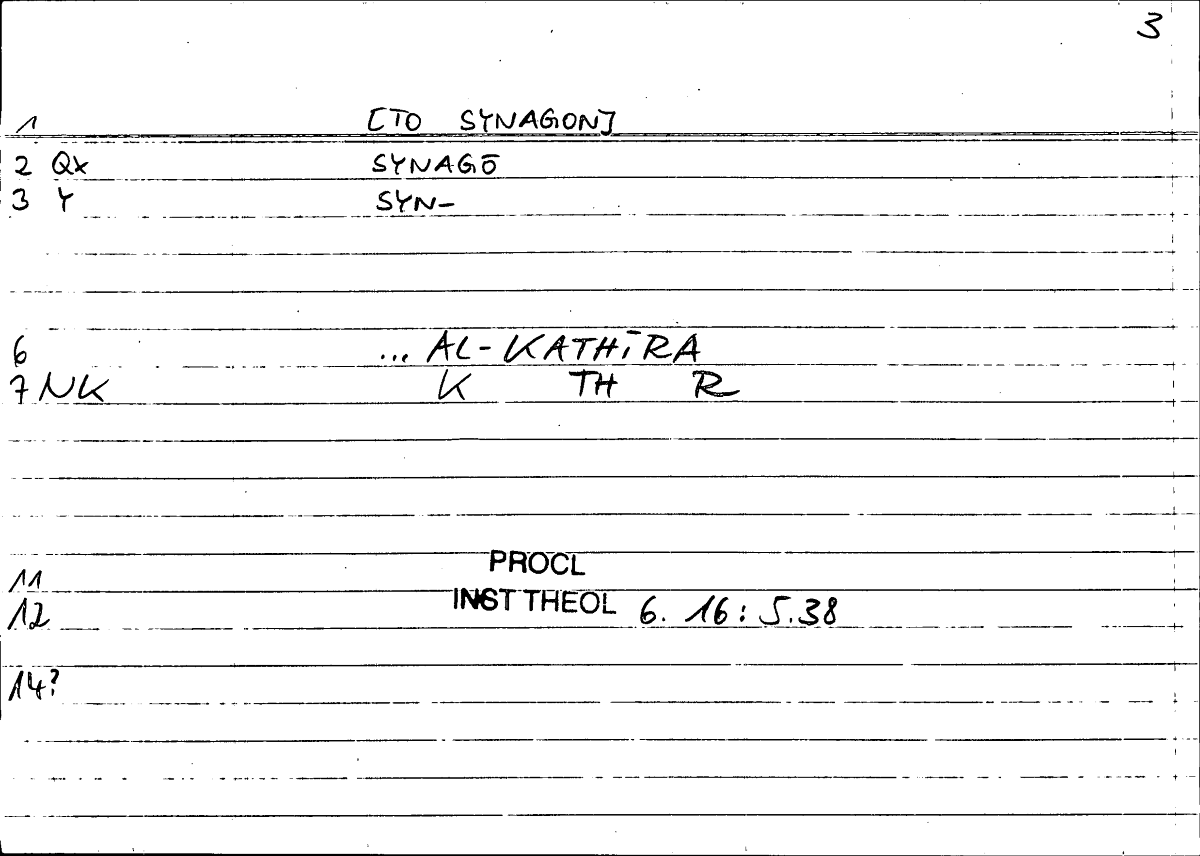 3
1 [TO SYNAGON]
2 Qx SYNAGŌ
3 Y SYN-
6 ... AL-KATHĪRA
7 NK K TH R
11 PROCL
12 INST THEOL 6. 16: 5.38
14?